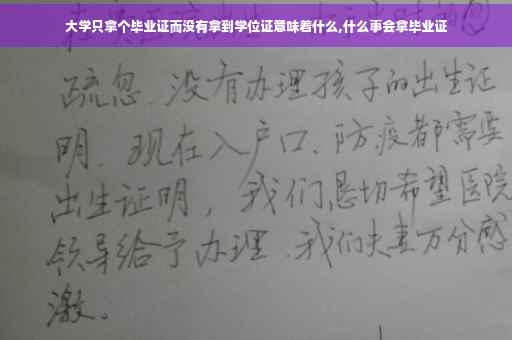 大学只拿个毕业证而没有拿到学位证意味着什么,什么事会拿毕业证
疏忽、没有办理孩子的出生证
明、现在入户口、防疫都需要
出生证明，我们恳切希望医院
领导给予办理、我们夫妻万分感
激。